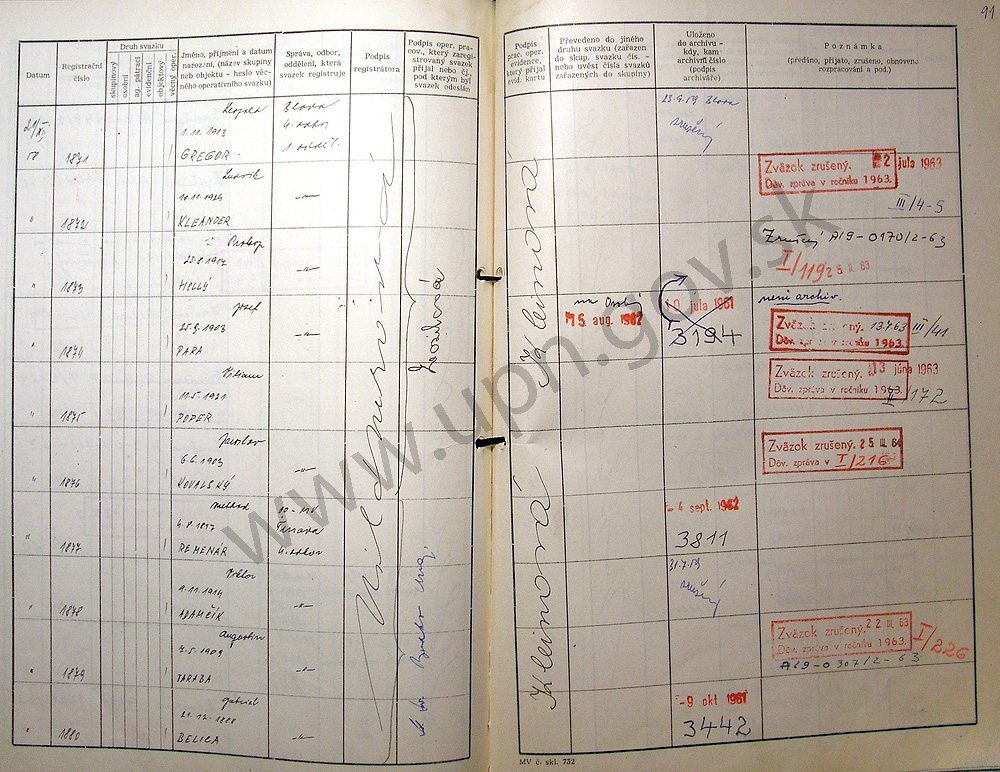 91
Druh svazku
Datum
Registrační číslo
skupinový
osobní
ag. pátrací
evidenční
objektový
věcný oper.
Jméno, příjmení a datum
narození, (název skupiny
neb objektu - heslo věc-
ného operativního svazku)
Správa, odbor,
oddělení, která
svazek registruje
Podpis
registrátora
Podpis oper. pra-
cov., který zaregi-
strovaný svazek
přijal nebo čj.,
pod kterým byl
svazek odeslán
Podpis
prac. oper.
evidence,
který přijal
evid. kartu
Převedeno do jiného
druhu svazku (zařazen
do skup. svazku čís. -
nebo uvést čísla svazků
zařazených do skupiny)
Uloženo
do archivu -
kdy, kam
archivní číslo
(podpis
archiváře)
Poznámka
(předáno, přijato, zrušeno, obnovena
rozpracování a pod.)
1871
1.11.1903
GREGOR
4. odbor
zrušený
Zväzok zrušený. 2 júla 1963
Dôv. zpráva v ročníku 1963.
III/4-5
" 1872
Ludvik
10.11.1924
KLEANDER
Zrušený A19-0170/2-63
I/119 25. II. 63
" 1873
Prokop
HOLLÝ
" 1874
Jozef
25.9.1903
PARA
15. aug. 1962
10 júla 1961
3194
není archiv.
Zväzok zrušený. 13.7.63 III/41
Dôv. zpráva v ročníku 1963.
" 1875
Viliam
11.5.1921
POPER
Zväzok zrušený. 13 júna 1963
Dôv. zpráva v ročníku 1963.
II/172
" 1876
Jaroslav
6.6.1903
KOVALSKÝ
Zväzok zrušený. 25. III. 64
Dôv. zpráva v I/216
" 1877
Method
4.8.1897
DEMENÁR
4. odbor
- 4 sept. 1962
3811
" 1878
Viktor
1.11.1914
ADAMČÍK
31.7.59
zrušený
" 1879
Augustin
7.5.1903
TARABA
Zväzok zrušený. 22 III. 63
Dôv. zpráva v ročníku 1963.
I/226
A19-0307/2-63
" 1880
Gabriel
21.12.1888
BELICA
- 9 okt 1961
3442
MV č. skl. 752
www.upn.gov.sk